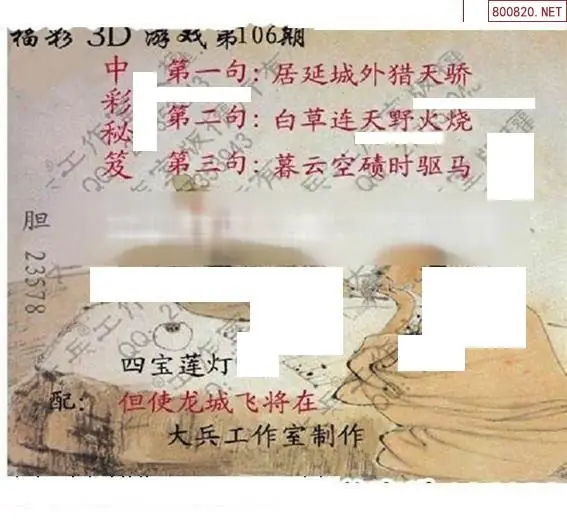 800820.NET
福彩3D游戏第106期
中彩秘笈
第一句:居延城外猎天骄
第二句:白草连天野火烧
第三句:暮云空碛时驱马
胆 23578
四宝莲灯
配: 但使龙城飞将在
大兵工作室制作